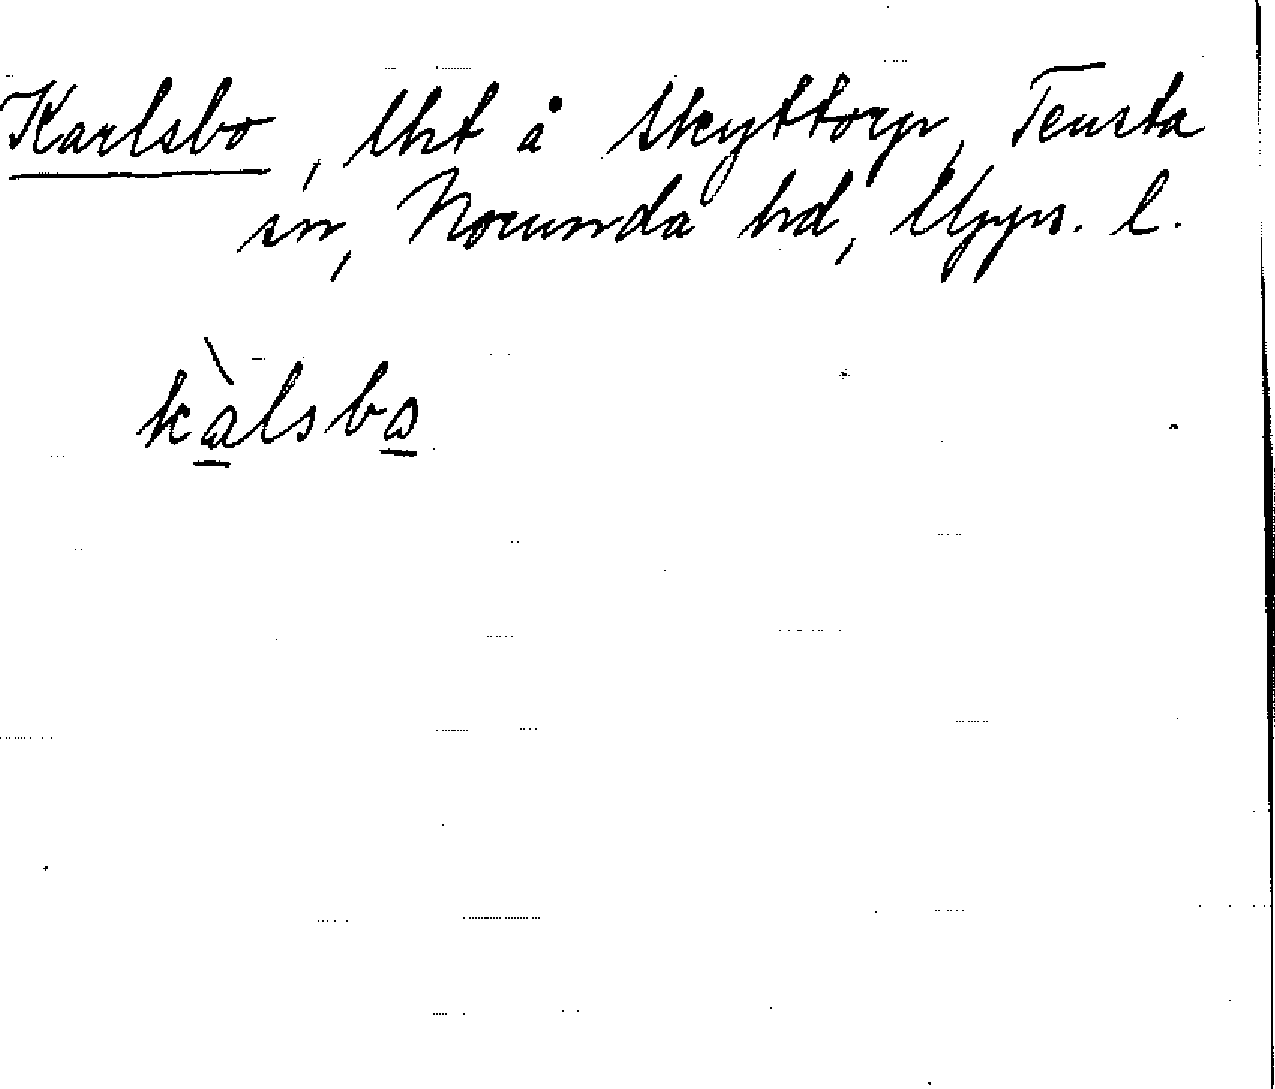 Karlsbo, lht å Skyttorp, Tensta
sn, Norunda hd, Upps. l.
kàlsbo